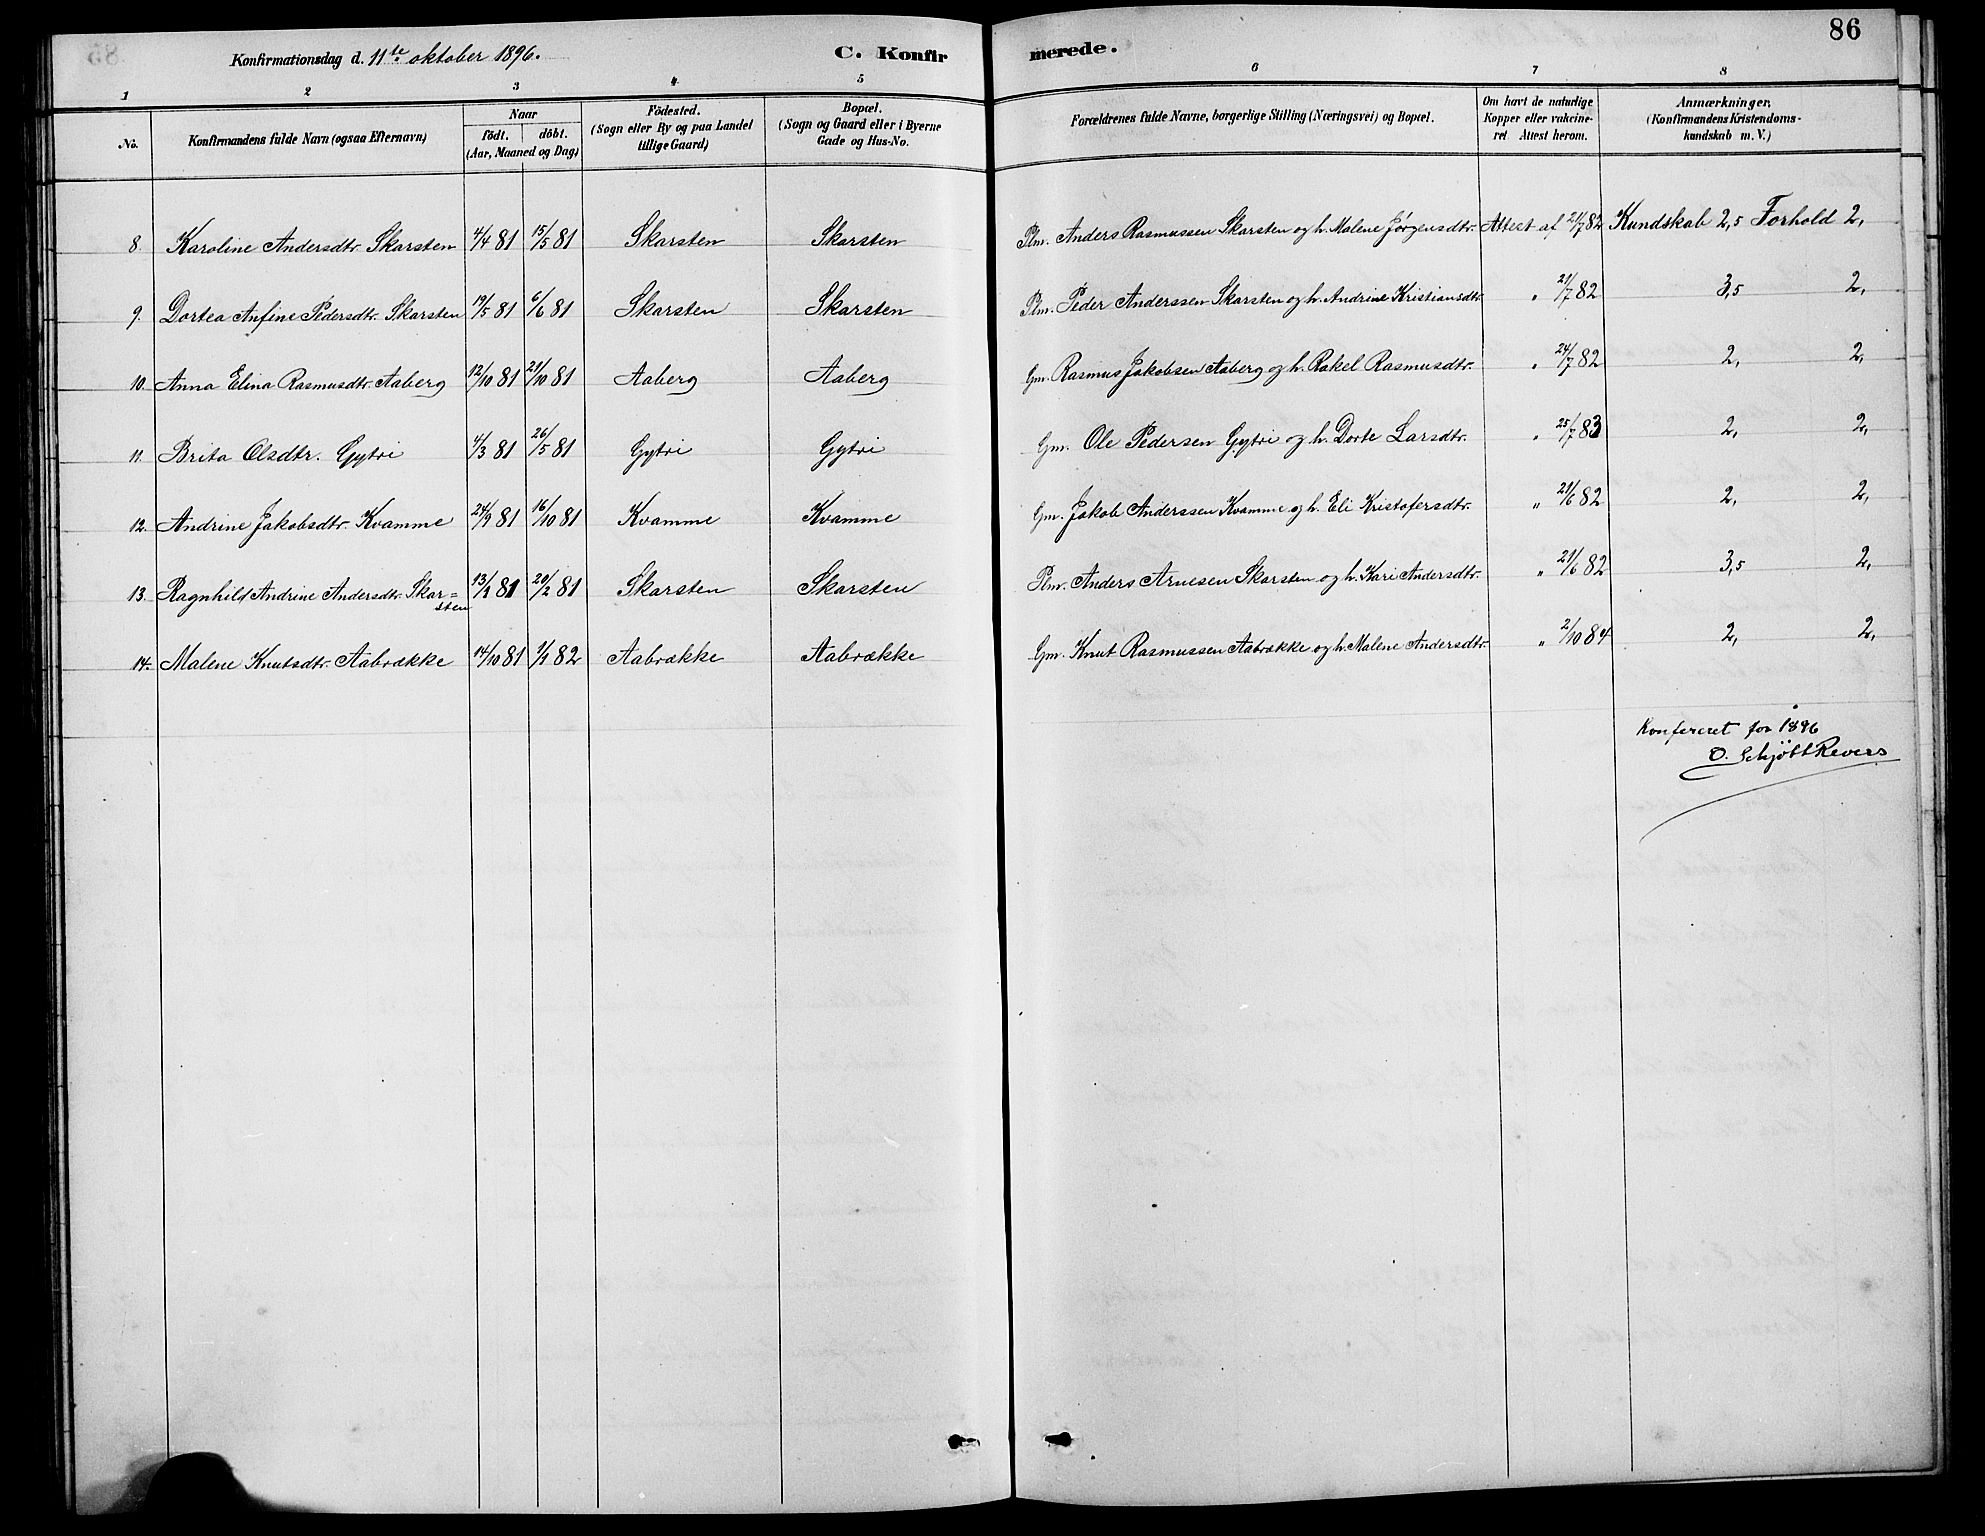 86
Konfirmationsdag d. 11te oktober 1896. C. Konfirmerede.
1 2 3 4 5 6 7 8
No. Konfirmandens fulde Navn (ogsaa Efternavn) Naar födt. döbt. (Aar, Maaned og Dag) Födested. (Sogn eller By og paa Landet tillige Gaard) Bopæl. (Sogn og Gaard eller i Byerne Gade og Hus-No. Forældrenes fulde Navne, borgerlige Stilling (Næringsvei) og Bopæl. Om havt de naturlige Kopper eller vakcineret Attest herom. Anmærkninger. (Konfirmandens Kristendomskundskab m. V.)
8. Karoline Andersdtr. Skarsten 4/4 81 15/5 81 Skarsten Skarsten Plm. Anders Rasmussen Skarsten og h. Malene Jørgensdtr. Attest af 21/7 82 Kundskab 2,5 Forhold 2,
9. Dortea Anfine Pedersdtr. Skarsten 19/5 81 6/6 81 Skarsten Skarsten Plm. Peder Anderssen Skarsten og h. Andrine Kristiansdtr. " 21/7 82 3,5 2,
10. Anna Elina Rasmusdtr. Aaberg 12/10 81 21/10 81 Aaberg Aaberg Gm. Rasmus Jakobsen Aaberg og h. Rakel Rasmusdtr. " 24/7 82 2, 2,
11. Brita Olsdtr. Gytri 4/3 81 26/5 81 Gytri Gytri Gm. Ole Pedersen Gytri og h. Dorte Larsdtr. " 25/7 83 2, 2,
12. Andrine Jakobsdtr. Kvamme 24/9 81 16/10 81 Kvamme Kvamme Gm. Jakob Anderssen Kvamme og h. Eli Kristofersdtr. " 21/6 82 2, 2,
13. Ragnhild Andrine Andersdtr. Skar=sten 81 20/2 81 Skarsten Skarsten Plm. Anders Arnesen Skarsten og h. Kari Andersdtr. " 21/6 82 3,5 2,
14. Malene Knutsdtr. Aabrække 14/10 81 1/1 82 Aabrække Aabrække Gm. Knut Rasmussen Aabrække og h. Malene Andersdtr. " 2/10 84 2, 2,
Konfereret for 1896
O. Schjøtt Revers